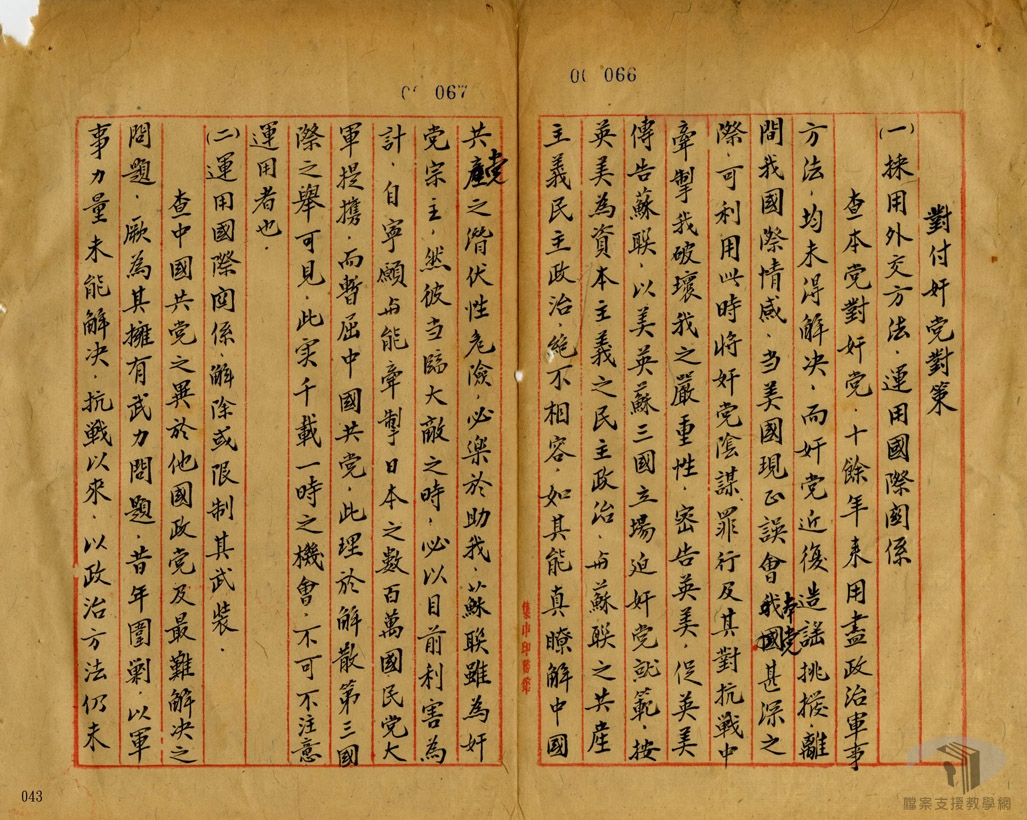 066
對付奸党對策
(一)採用外交方法．運用國際関係
查本党對奸党．十餘年来用盡政治軍事
方法．均未得解决．而奸党近復造謡挑撥．離
間我國際情感．当美國現正誤會本党甚深之
際．可利用此時将奸党陰謀．罪行及其對抗戦中
牽掣我破壞我之嚴重性．密告英美．促英美
傳告蘇联．以美英蘇三國立場迫奸党就範．按
英美為資本主義之民主政治．与蘇联之共産
主義民主政治．絶不相容．如其能真瞭解中國
067
共党之潜伏性危險．必樂於助我．蘇联雖為奸
党宗主．然彼当臨大敵之時．必以目前利害為
計．自寧願与能牽掣日本之數百萬國民党大
軍提携．而暫屈中國共党．此理於解散第三國
際之舉可見．此实千載一時之機會．不可不注意
運用者也．
(二)運用國際関係．解除或限制其武裝．
查中國共党之異於他國政党及最難解决之
問題．厥為其擁有武力問題．昔年圍剿．以軍
事力量未能解决．抗戦以来．以政治方法仍未
043
檔案支援教學網